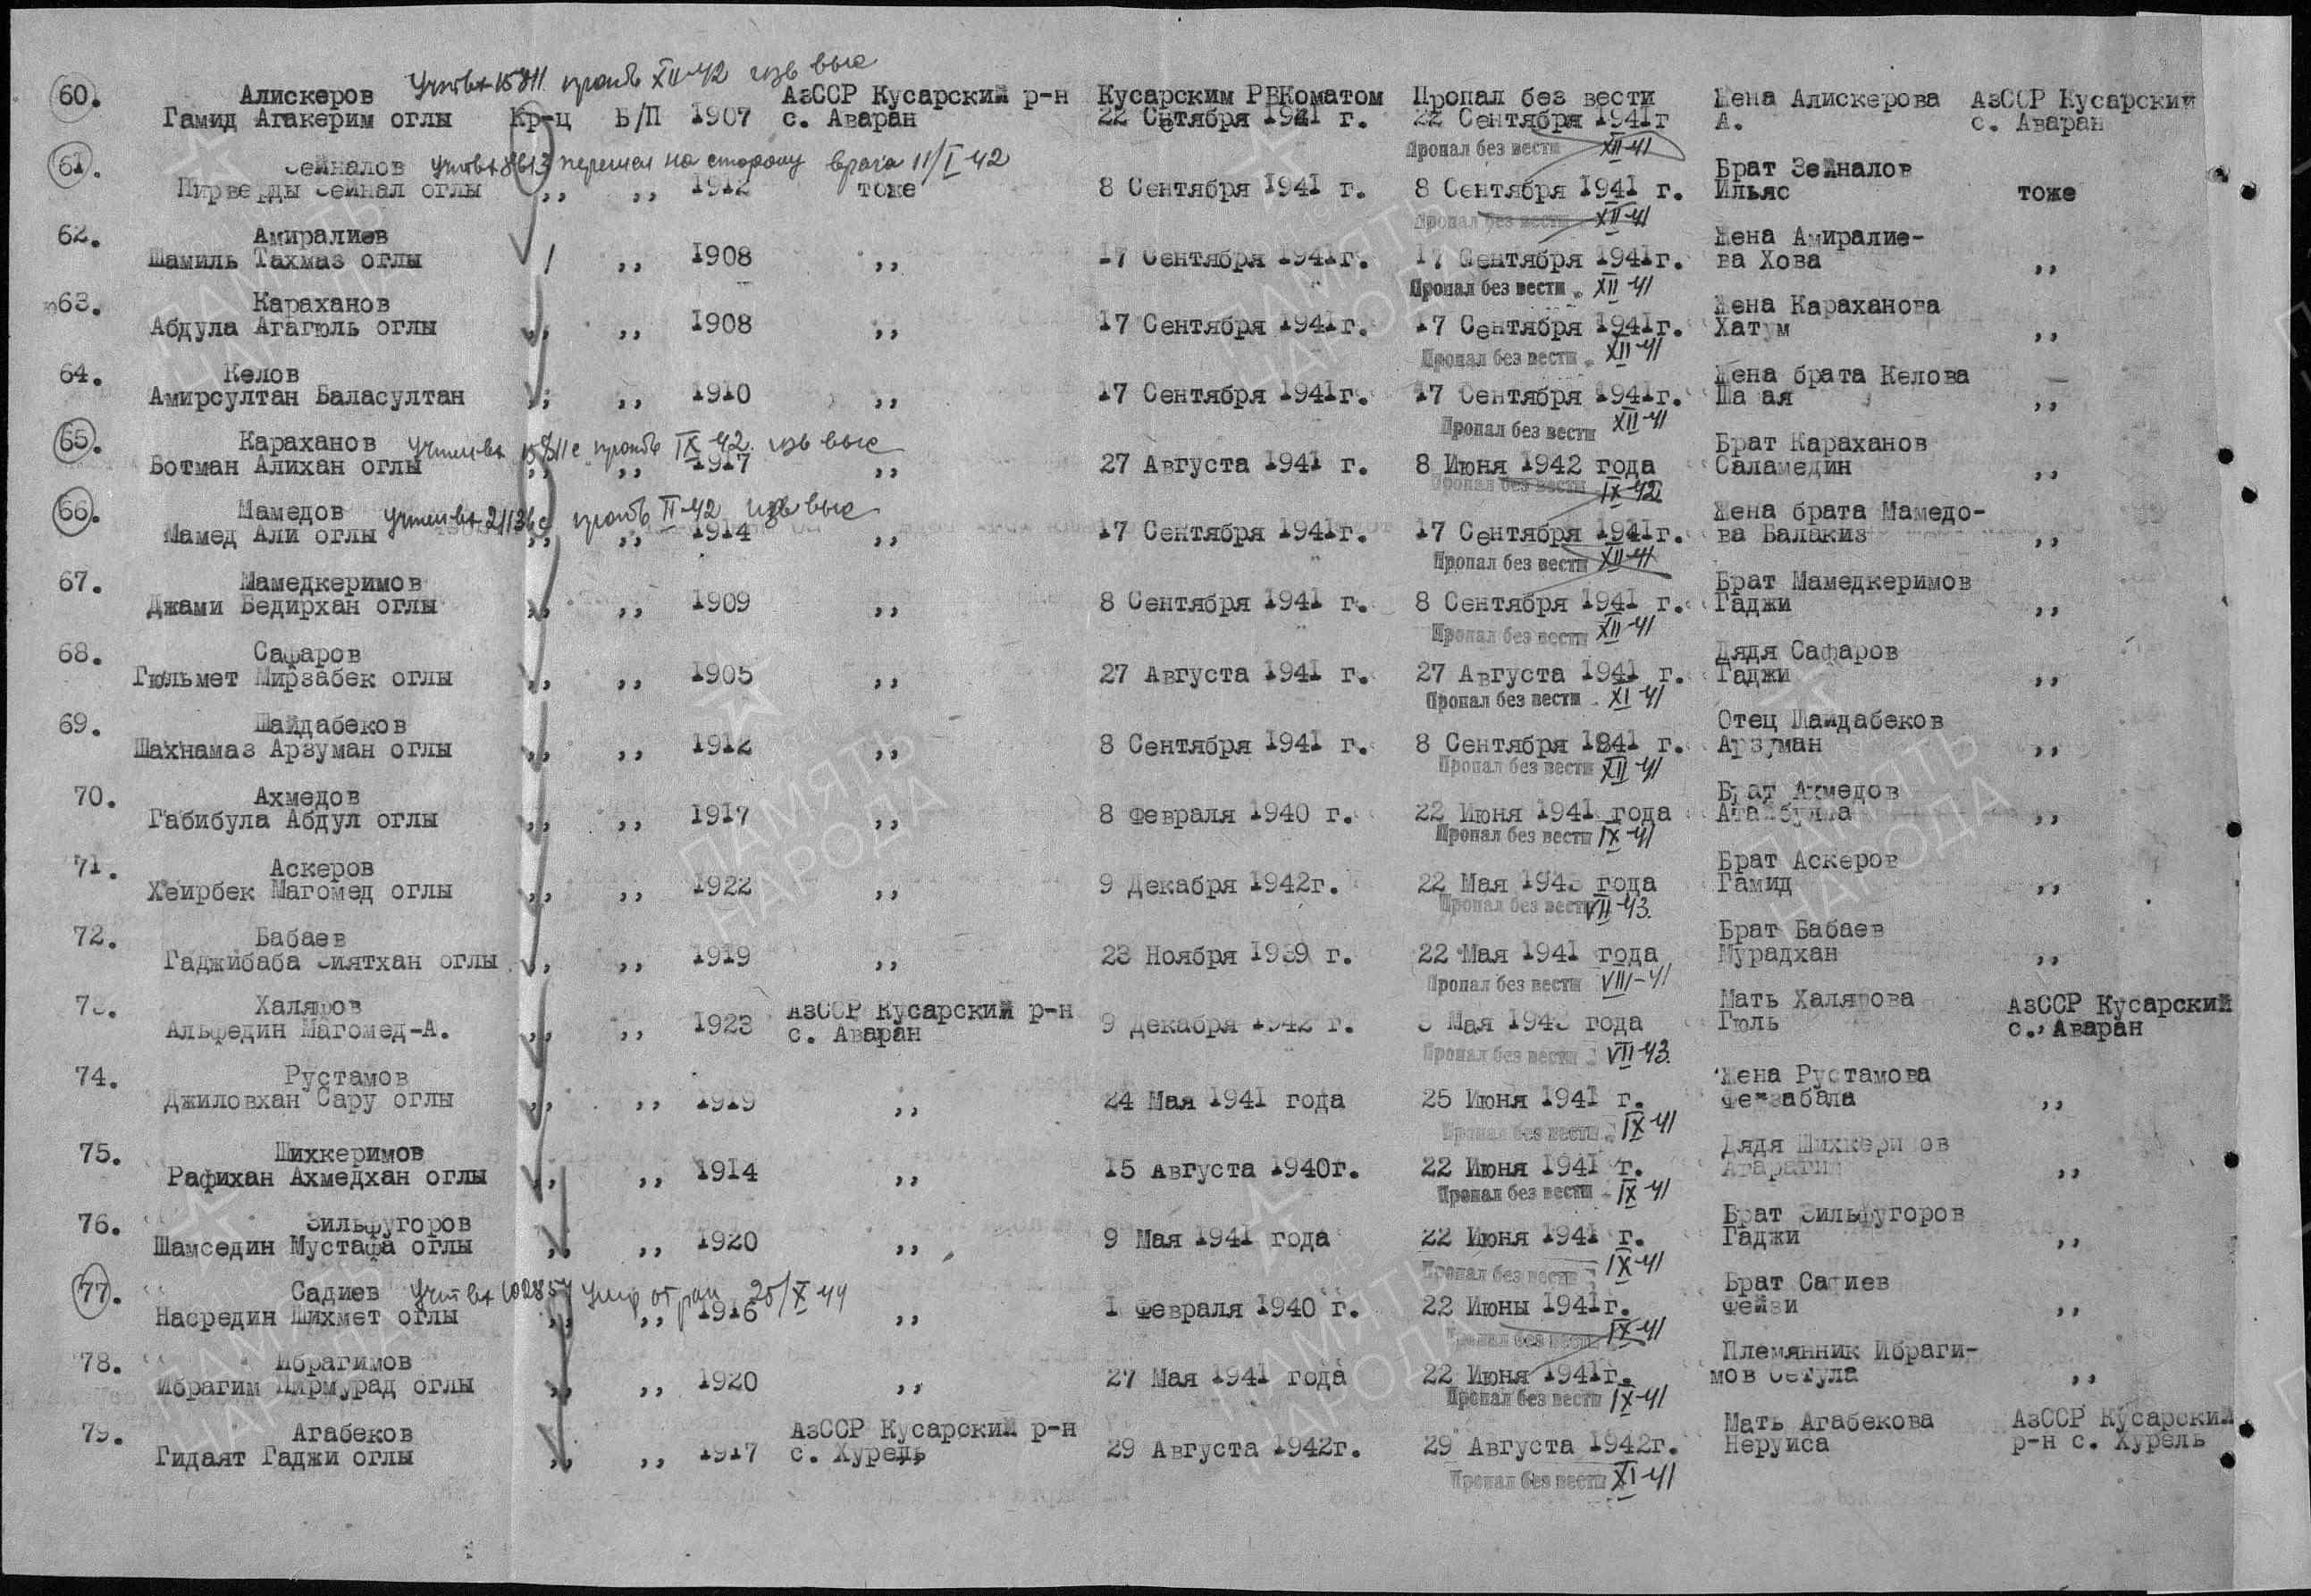 Учтен вх 15811 проп б/в XII-42 изв выс
60. Алискеров АзССР Кусарский р-н Кусарским РВКоматом Пропал без вести Жена Алискерова АзССР Кусарский
Гамид Агакерим оглы Кр-ц Б/П 1907 с. Аваран 22 Сетября 1941 г. 22 Сентября 1941г А. с. Аваран
Пропал без вести XII-41
61. Зейналов перешел на сторону врага 11/I-42 Брат Зейналов
Пирверды Зейнал оглы ,, ,, 1912 тоже 8 Сентября 1941 г. 8 Сентября 1941 г. Ильяс тоже
Пропал без вести XII-41
62. Амиралиев Жена Амиралие-
Шамиль Тахмаз оглы / ,, 1908 ,, 17 Сентября 1941г. 17 Сентября 1941г. ва Хова ,,
Пропал без вести XII-41
63. Караханов Жена Караханова
Абдула Агагюль оглы ,, ,, 1908 ,, 17 Сентября 1941г. 17 Сентября 1941г. Хатум ,,
Пропал без вести XII-41
64. Келов Жена брата Келова
Амирсултан Баласултан ,, ,, 1910 ,, 17 Сентября 1941г. 17 Сентября 1941г. ,,
Пропал без вести XII-41
65. Караханов IX-42 изв выс Брат Караханов
Ботман Алихан оглы ,, ,, 1917 ,, 27 Августа 1941 г. 8 Июня 1942 года Саламедин ,,
Пропал без вести IX-42
66. Мамедов II-42 изв выс Жена брата Мамедо-
Мамед Али оглы ,, ,, 1914 ,, 17 Сентября 1941г. 17 Сентября 1941г. ва Балакиз ,,
Пропал без вести XII-41
67. Мамедкеримов Брат Мамедкеримов
Джами Бедирхан оглы ,, ,, 1909 ,, 8 Сентября 1941 г. 8 Сентября 1941 г. Гаджи ,,
Пропал без вести XII-41
68. Сафаров Дядя Сафаров
Гюльмет Мирзабек оглы ,, ,, 1905 ,, 27 Августа 1941 г. 27 Августа 1941 г. Гаджи ,,
Пропал без вести XI-41
69. Шайдабеков Отец Шайдабеков
Шахнамаз Арзуман оглы ,, ,, 1912 ,, 8 Сентября 1941 г. 8 Сентября 1941 г. Арзуман ,,
Пропал без вести XII-41
70. Ахмедов Брат Ахмедов
Габибула Абдул оглы ,, ,, 1917 ,, 8 Февраля 1940 г. 22 Июня 1941 года ,,
Пропал без вести IX-41
71. Аскеров Брат Аскеров
Хеирбек Магомед оглы ,, ,, 1922 ,, 9 Декабря 1942г. 22 Мая 1943 года Гамид ,,
Пропал без вести VII-43.
72. Бабаев Брат Бабаев
Гаджибаба Зиятхан оглы ,, ,, 1919 ,, 23 Ноября 1939 г. 22 Мая 1941 года Мурадхан ,,
Пропал без вести VIII-41
73. Халяфов АзССР Кусарский р-н Мать Халяфова АзССР Кусарский
Альфедин Магомед-А. ,, ,, 1923 с. Аваран 9 Декабря 1942 г. Мая 1943 года Гюль с. Аваран
Пропал без вести VII-43.
74. Рустамов Жена Рустамова
Джиловхан Сару оглы ,, ,, 1919 ,, 24 Мая 1941 года 25 Июня 1941 г. ,,
Пропал без вести IX-41
75. Шихкеримов Дядя Шихкеримов
Рафихан Ахмедхан оглы ,, ,, 1914 ,, 15 Августа 1940г. 22 Июня 1941 г. ,,
Пропал без вести IX-41
76. Зильфугоров Брат Зильфугоров
Шамседин Мустафа оглы ,, ,, 1920 ,, 9 Мая 1941 года 22 Июня 1941 г. Гаджи ,,
Пропал без вести IX-41
77. Садиев умер от ран 25/X-44 Брат Садиев
Насредин Шихмет оглы ,, ,, 1916 ,, 1 Февраля 1940 г. 22 Июны 1941г. Фейзи ,,
Пропал без вести IX-41
78. Ибрагимов Племянник Ибраги-
Ибрагим Пирмурад оглы ,, ,, 1920 ,, 27 Мая 1941 года 22 Июня 1941г. мов Сетула ,,
Пропал без вести IX-41
79. Агабеков АзССР Кусарский р-н Мать Агабекова АзССР Кусарский
Гидаят Гаджи оглы ,, ,, 1917 с. Хурель 29 Августа 1942г. 29 Августа 1942г. Неруиса р-н с. Хурель
Пропал без вести XI-41
ПАМЯТЬ
НАРОДА